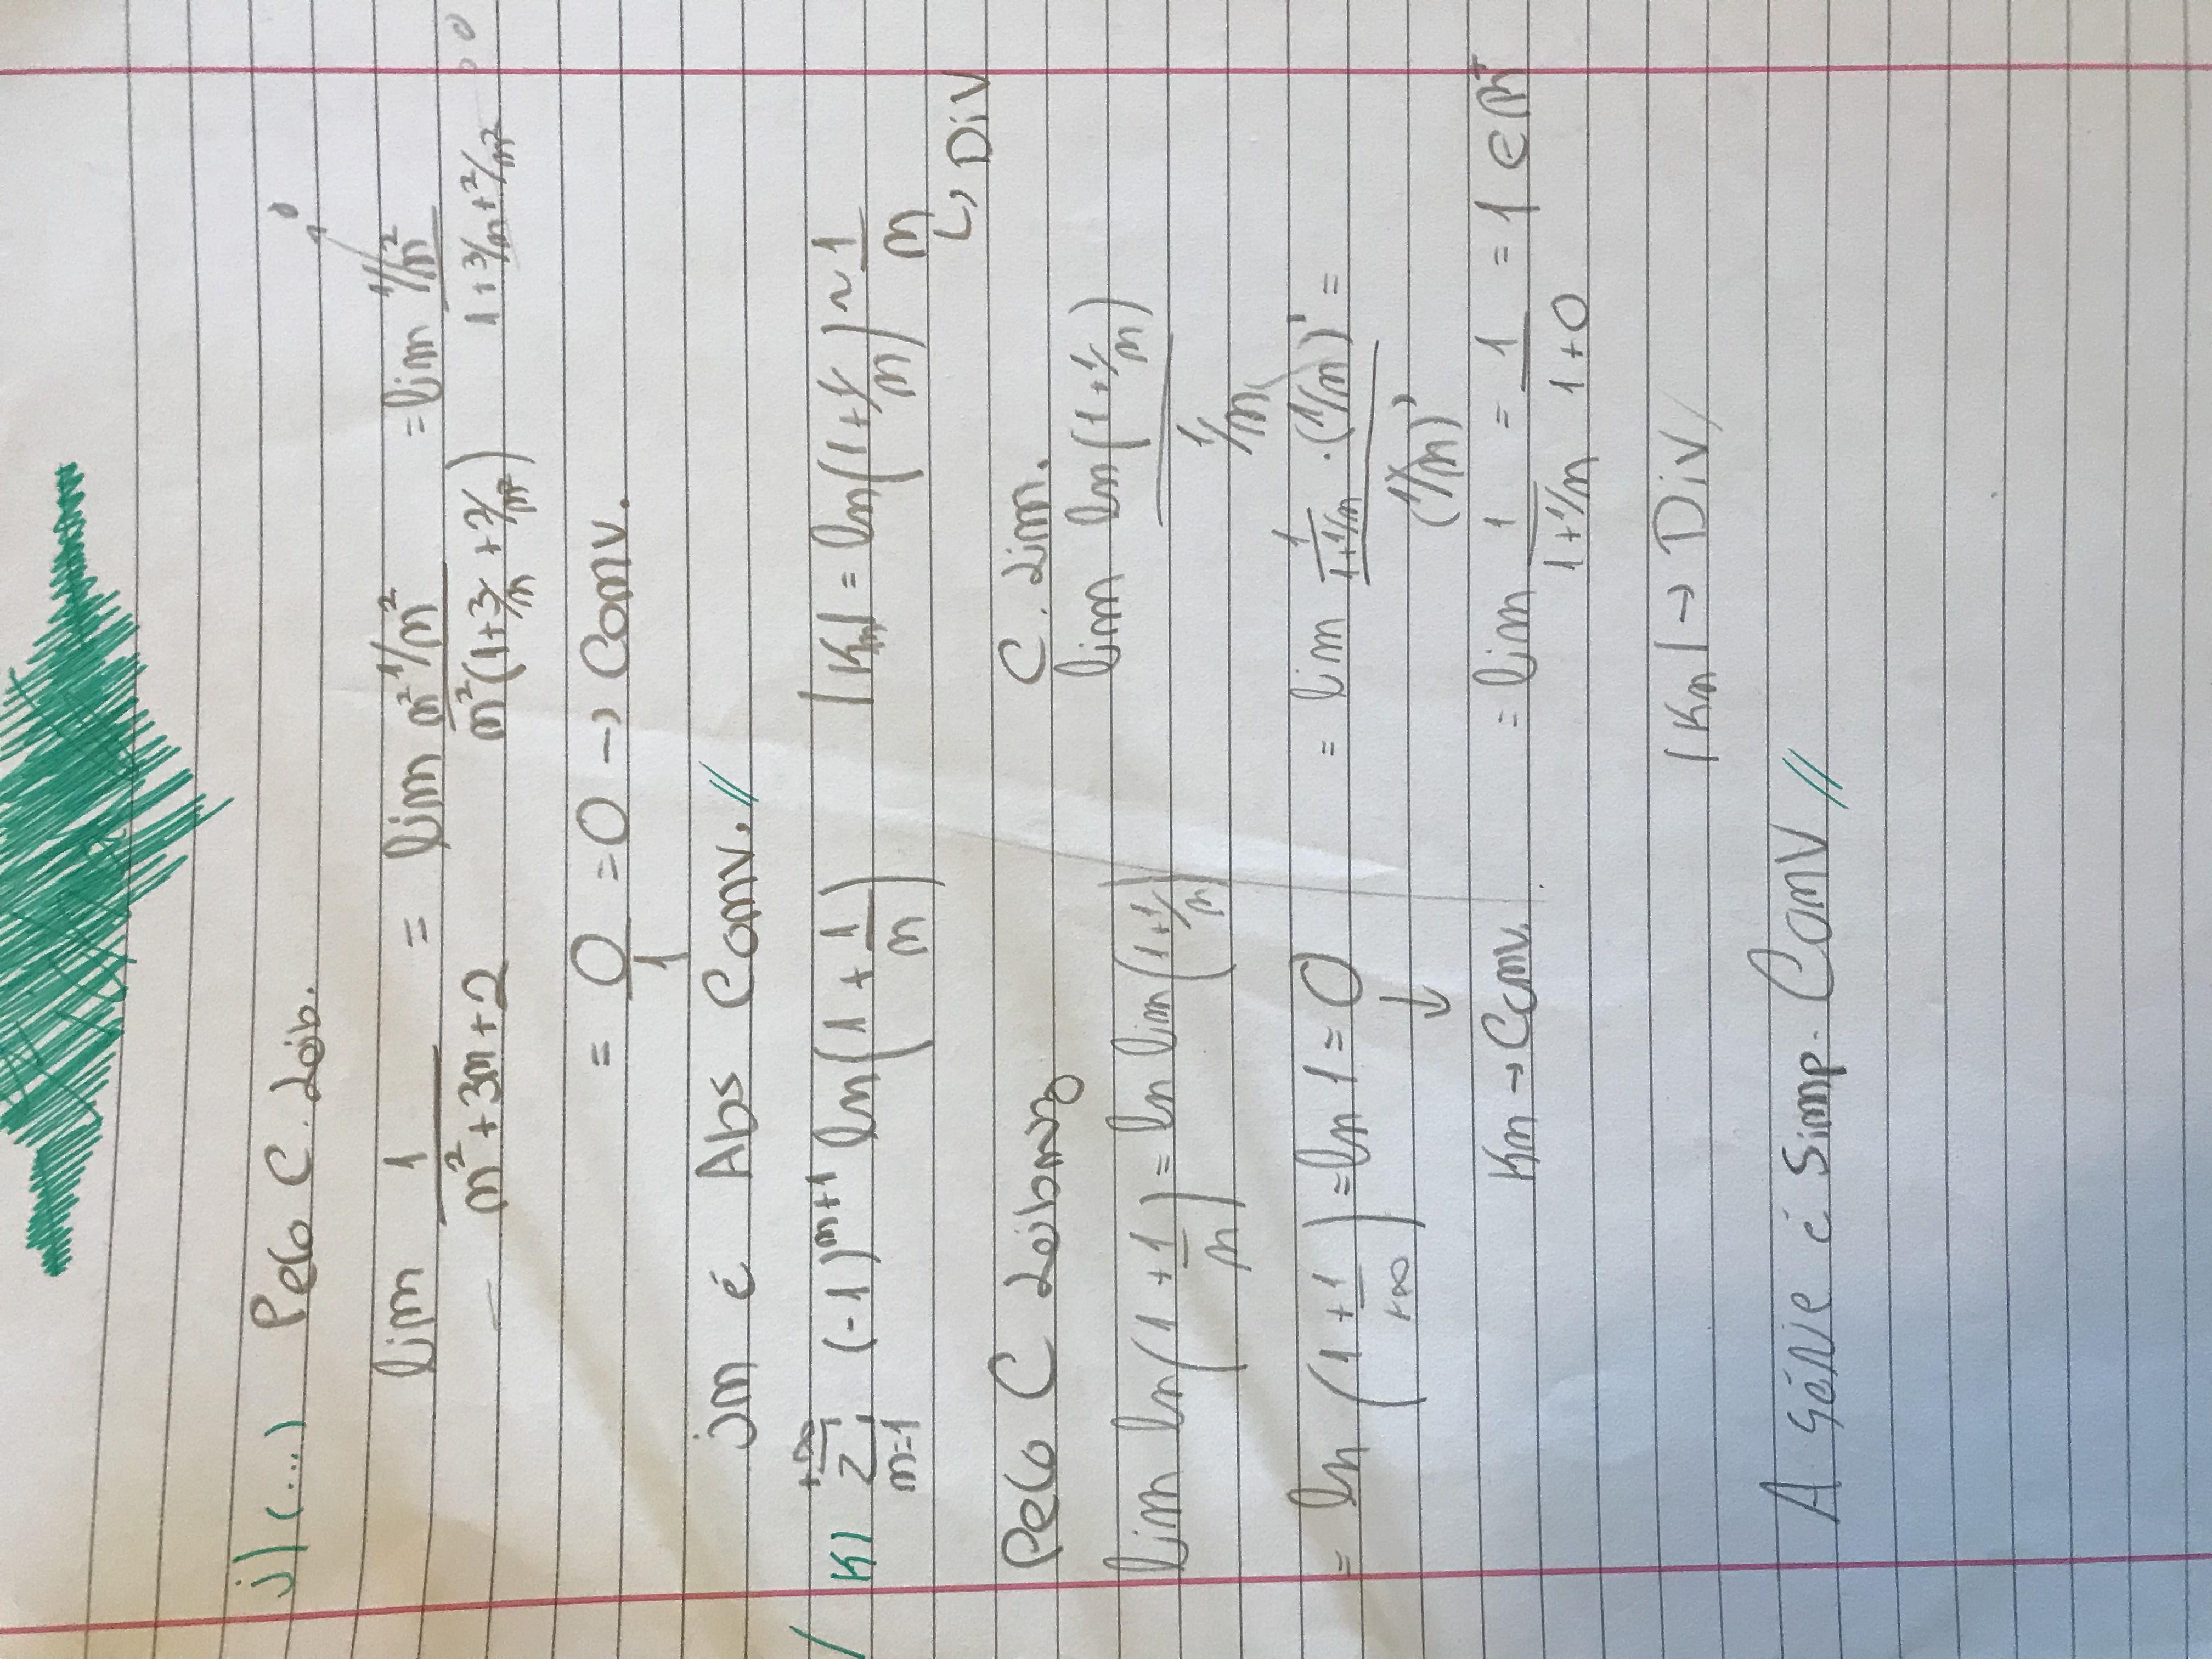 j) (...) Pelo C. Leib.
lim 1/(n²+3n+2) = lim n² 1/n² / n²(1+3/n+2/n²) = lim 1/n² / (1+3/n+2/n²) → 0
= 0/1 = 0 → Conv.
jn é Abs Conv. //
K) +∞ Σ n=1 (-1)^(n+1) ln(1 + 1/n) |Kn| = ln(1+1/n) ~ 1/n
↳ Div
Pelo C Leibniz
C. Lim.
lim ln(1 + 1/n) = ln lim (1+1/n)
lim ln(1+1/n) / 1/n
= ln(1 + 1/+∞) = ln 1 = 0
↓
Kn → Conv.
= lim 1/(1+1/n) · (1/n)' / (1/n)' =
= lim 1/(1+1/n) = 1/(1+0) = 1 ∈ R⁺
|Kn| → Div
A série é Simp. Conv //